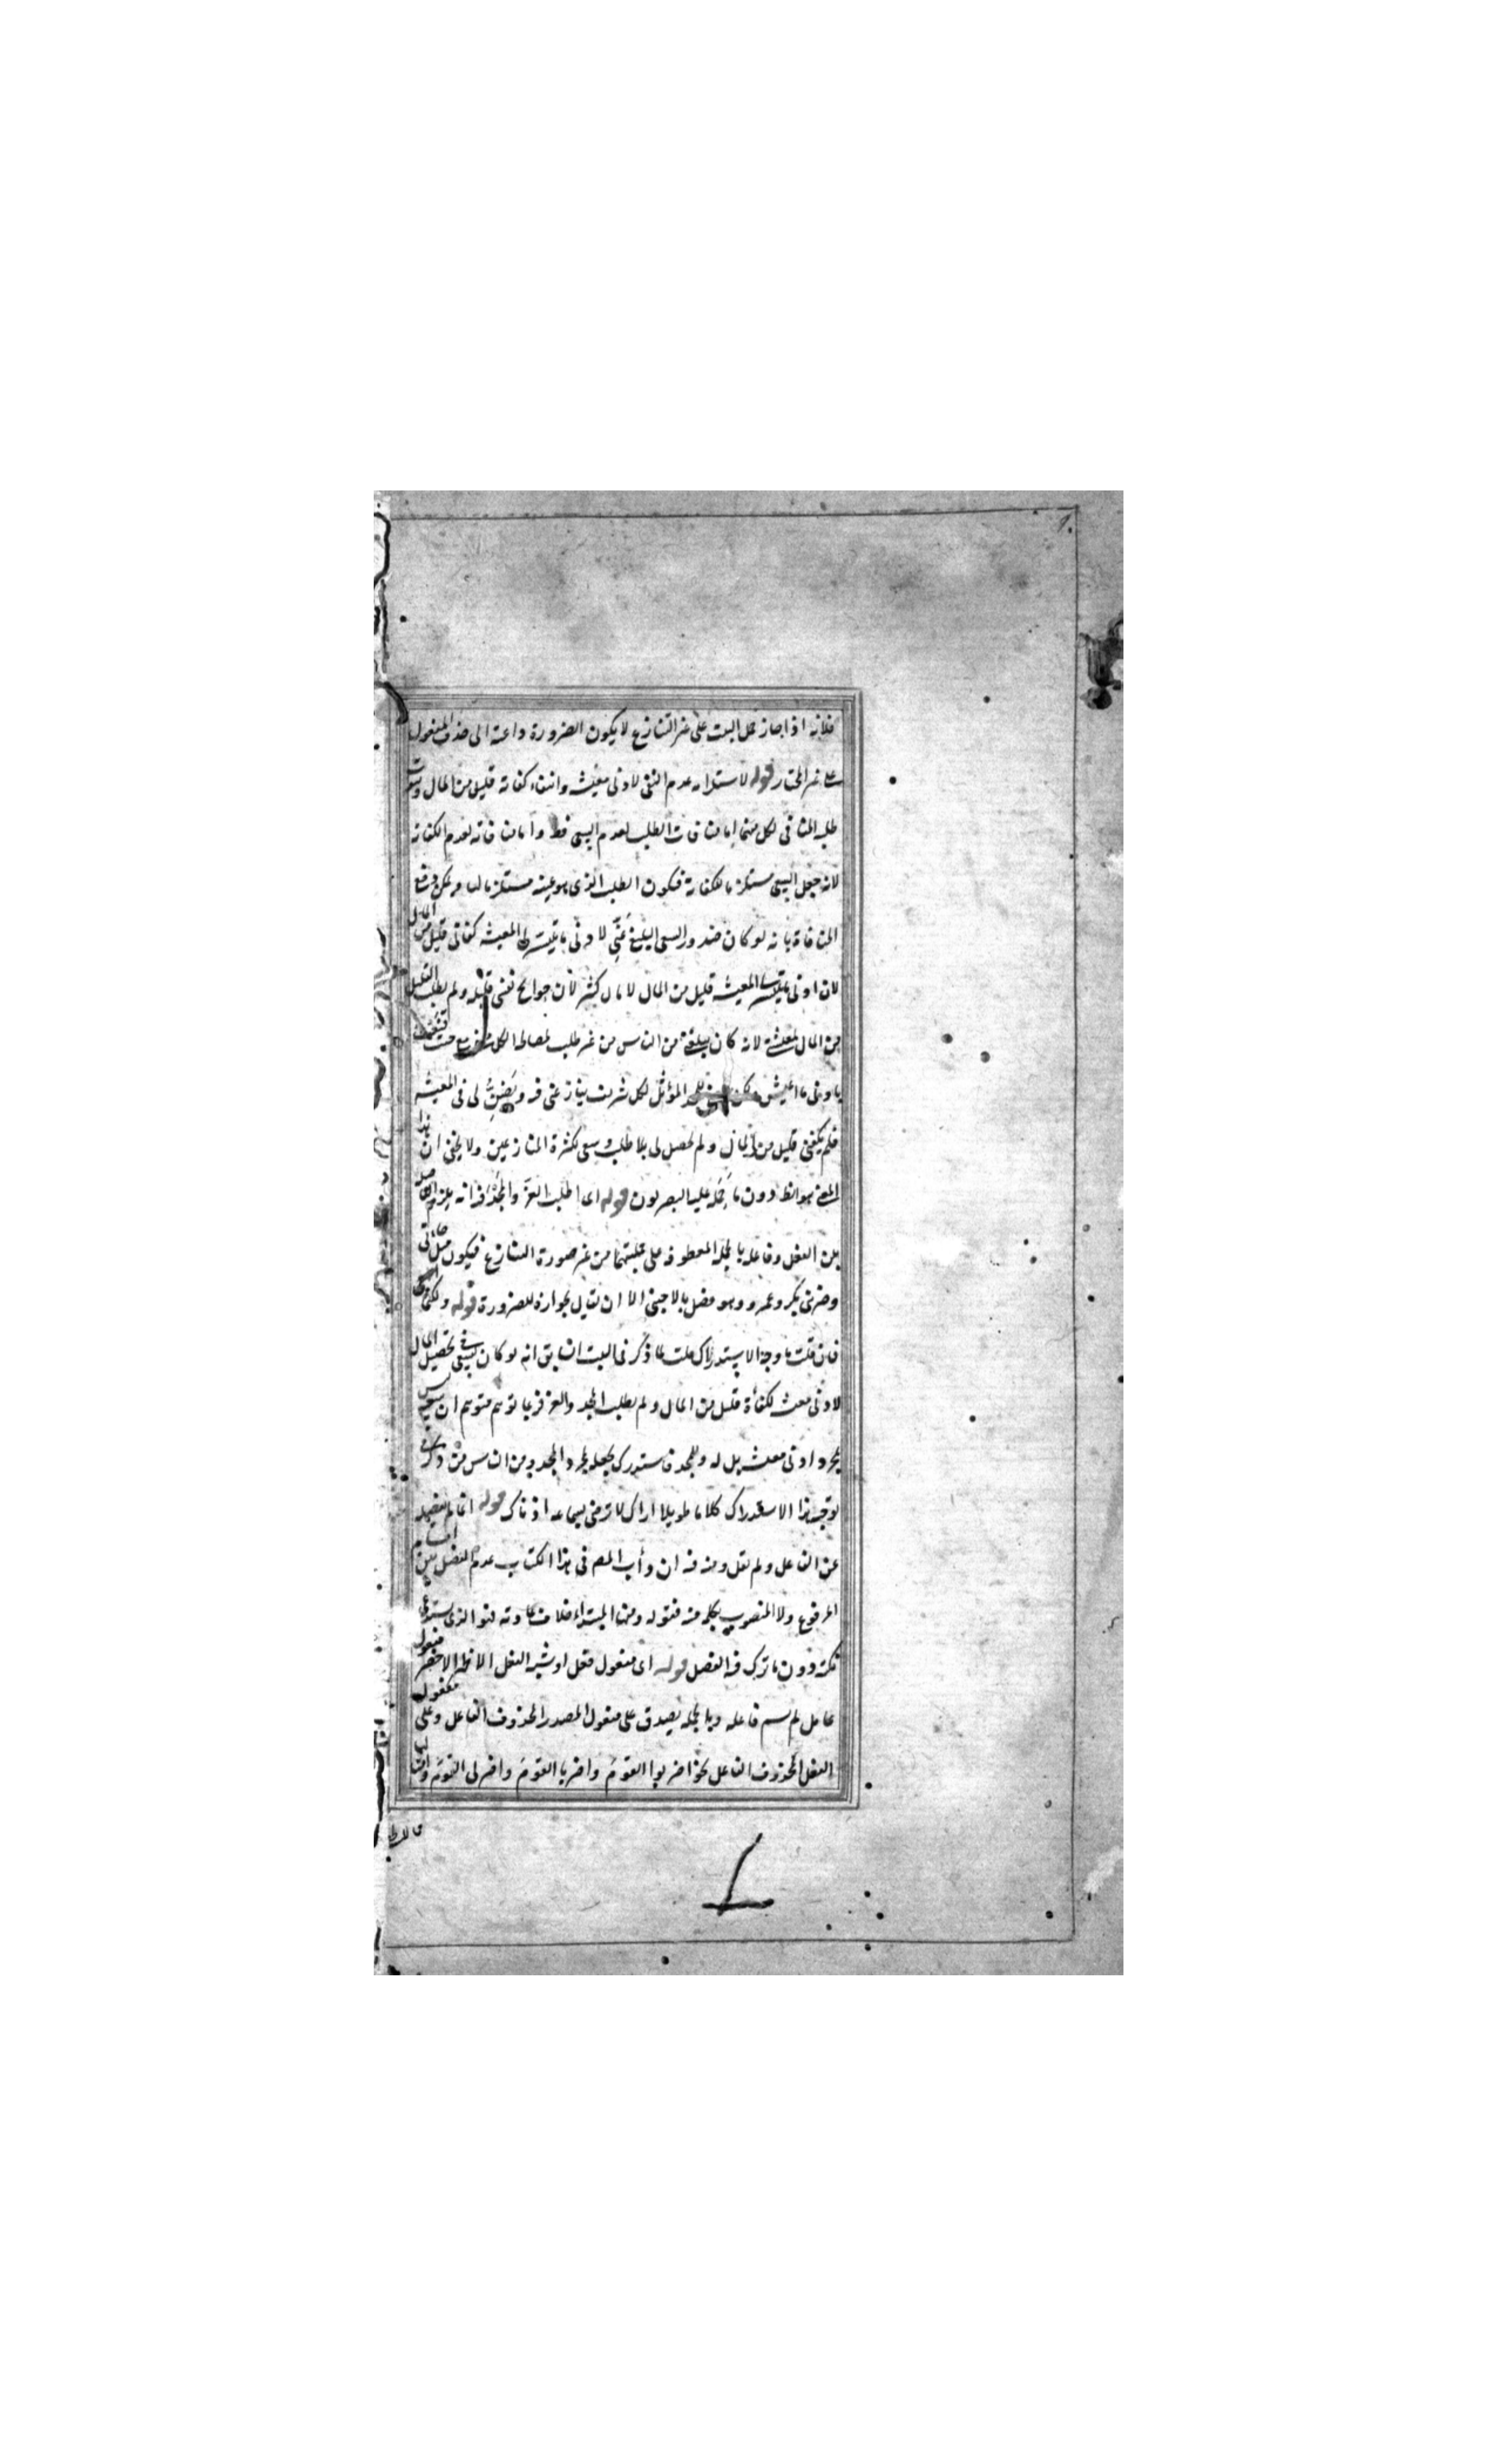 فلانه اذا جاز حمل البيت على غير التنازع لا يكون الضرورة داعية الى حذف المفعول
على غير المختار قوله لاستلزامه عدم النفى لادنى معيشة وانتفاء كفاية قليل من المال وثبوت
طلبه المنافى لكل منهما اما منافات الطلب لعدم السعى فظ واما منافاته لعدم الكفاية
لانه جعل السعى مستلزما للكفاية فيكون الطلب الذى هو عينه مستلزما لها ويمكن دفع
المنافاة بانه لو كان صدور السعى البليغ عنى لادنى ما تيسر به المعيشة كفانى قليل من المال
لان ادنى ما تيسر به المعيشة قليل من المال لا مال كثير لان حوايج نفسى قليلة ولم يطلب القليل
من المال لمعيشة لانه كان يبلغه من الناس من غير طلب لمصالحة الكل حيث قنعت
بادنى ما اعيش المؤثل لكل شريف ينازعنى فيه ويضيق لى فى المعيشة
فلم يكفنى قليل من المال ولم يحصل لى بلا طلب وسعى لكثرة المنازعين ولا يخفى ان هذا
المعنى هو الظ دون ما حمله عليه البصريون قوله اى اطلب العز والمجد فانه يلزم الفصل
بين الفعل وفاعله بالجملة المعطوفة على جملتهما من غير صورة التنازع فيكون مثل جائنى
وضربنى بكر وعمرو وهو فصل بالاجنبى الا ان يقال بجوازه للضرورة قوله ولكنما
فان قلت ما وجه الاستدراك قلت لما ذكر فى البيت السابق انه لو كان يسعى فى تحصيل المال
لادنى معيشة لكفاه قليل من المال ولم يطلب المجد والعز فربما توهم متوهم ان ليس سعيه
لمجرد ادنى معيشة بل له وللمجد فاستدرك بجعله لمجرد المجد ومن الناس من ذكر فى
توجيه هذا الاستدراك كلاما طويلا اراك لا ترضى بسماعه اذناك قوله انما لم يفصله
عن الفاعل ولم يقل ومنه فيه ان دأب المص فى هذا الكتاب عدم الفصل بين اقسام
المرفوع ولا المنصوب بكلمة منه فقوله ومنها المبتداء خلاف عادته فهو الذى يستدعى
نكتة دون ما ترك فيه الفصل قوله اى مفعول فعل او شبه الفعل الاظهر الاخصر مفعول
عامل لم يسم فاعله وبالجملة يصدق على مفعول المصدر المحذوف الفاعل وعلى مفعول
الفعل المحذوف الفاعل نحو اضربوا القوم واضربا القوم واضربى القوم